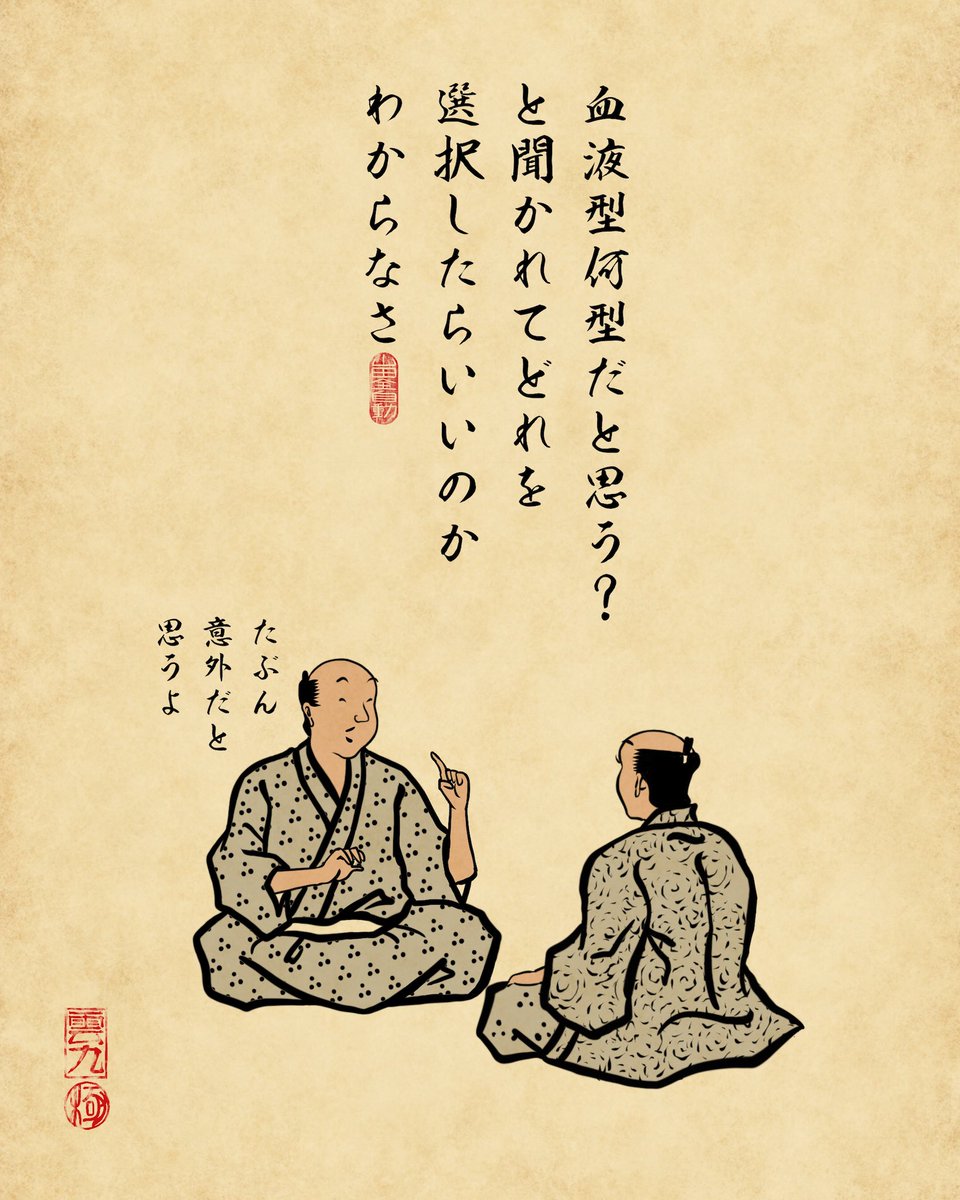 血液型何型だと思う？
と聞かれてどれを
選択したらいいのか
わからなさ
たぶん
意外だと
思うよ